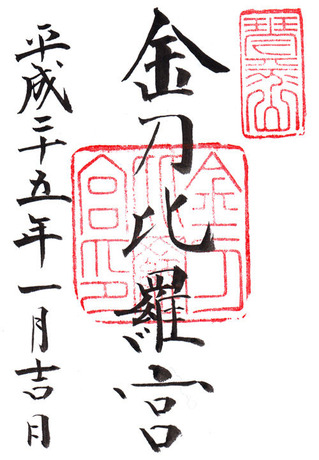 金刀比羅宮
平成二十五年一月吉日
金刀
比羅
宮印